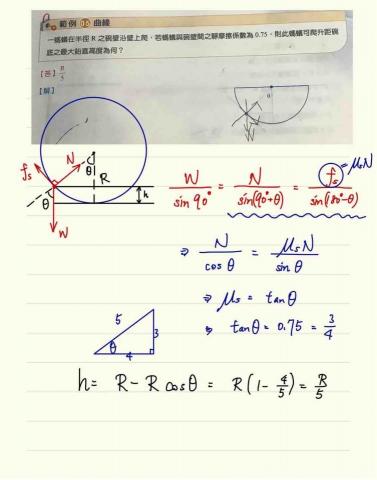 範例 05 曲線
一螞蟻在半徑 R 之碗壁沿壁上爬，若螞蟻與碗壁間之靜摩擦係數為 0.75，則此螞蟻可爬升距碗
底之最大鉛直高度為何？
【答】R/5
【解】
θ
W
fs N θ R h θ W
W/sin 90° = N/sin(90°+θ) = fs/sin(180°-θ) = μsN
⇒ N/cos θ = μsN/sin θ
⇒ μs = tan θ
⇒ tan θ = 0.75 = 3/4
5 3 θ 4
h = R - R cos θ = R(1 - 4/5) = R/5